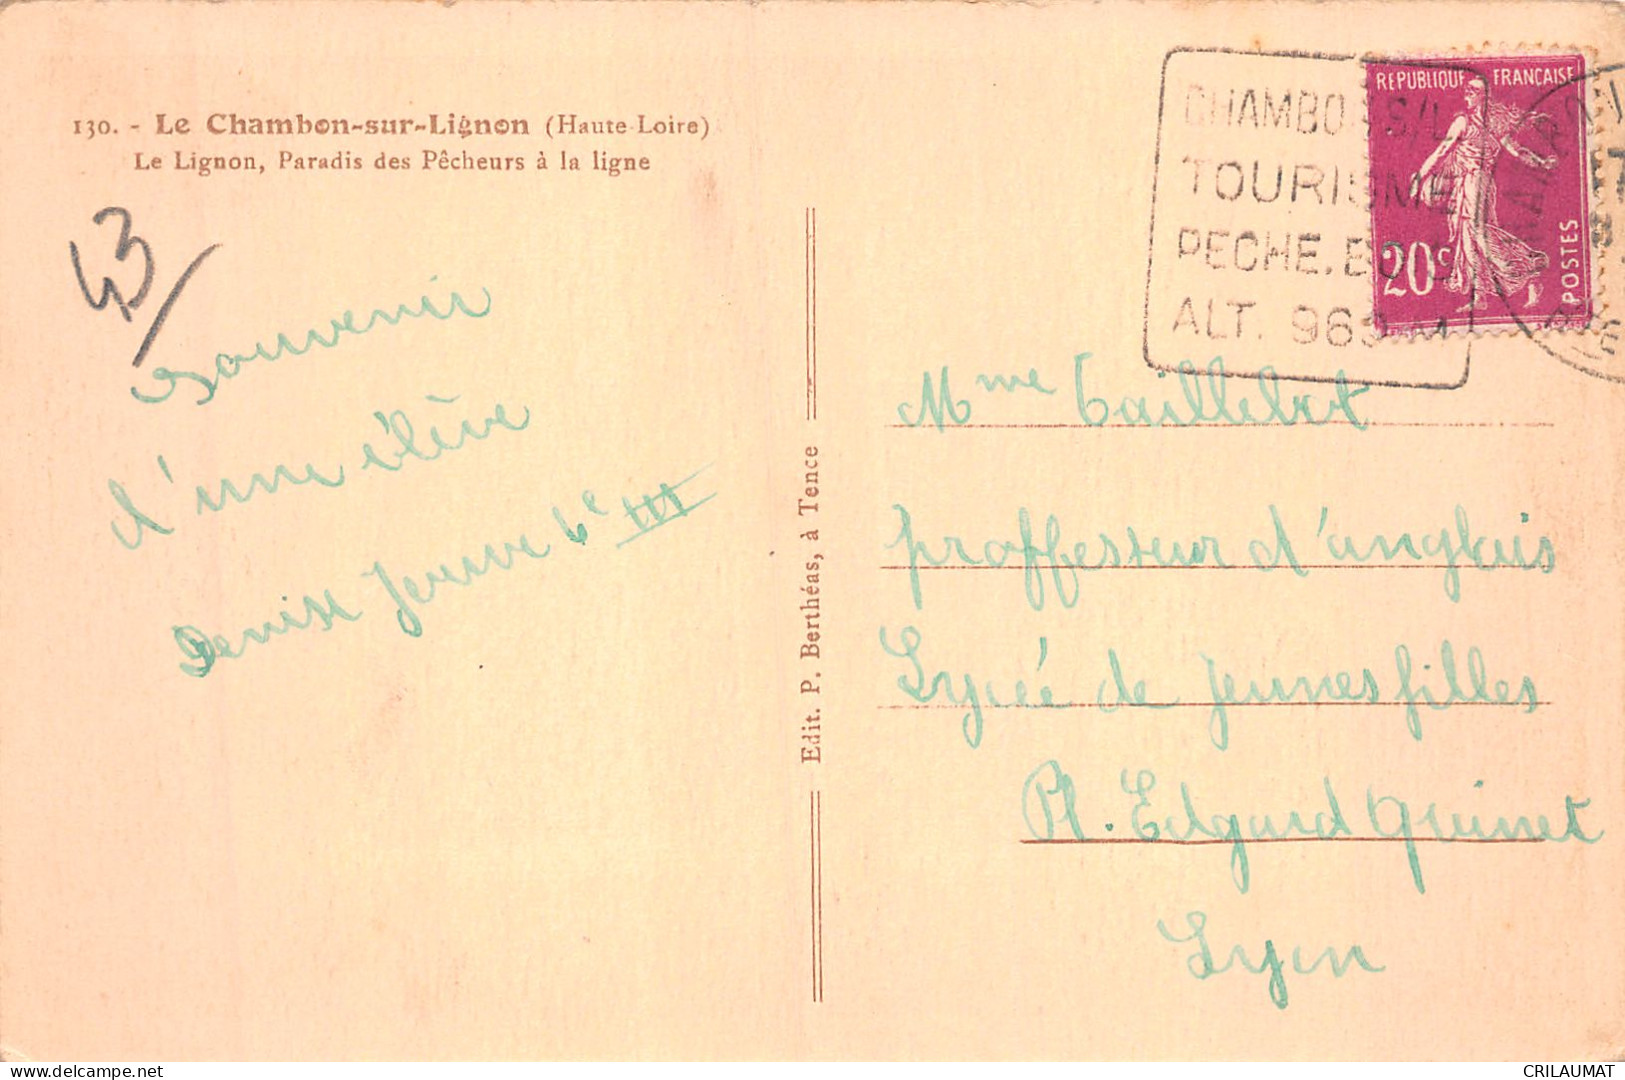 130. - Le Chambon-sur-Lignon (Haute-Loire)
Le Lignon, Paradis des Pêcheurs à la ligne
43
Souvenir
d'une élève
Denise Jouve 6e III
Edit. P. Berthéas, à Tence
CHAMBON S/L
TOURISME
PECHE. BO
ALT. 96
REPUBLIQUE FRANÇAISE
20c
POSTES
Mme Taillebot
proffesseur d'anglais
Lycéé de jeunes filles
Pl. Edgard Quinet
Lyon
CRILAUMAT